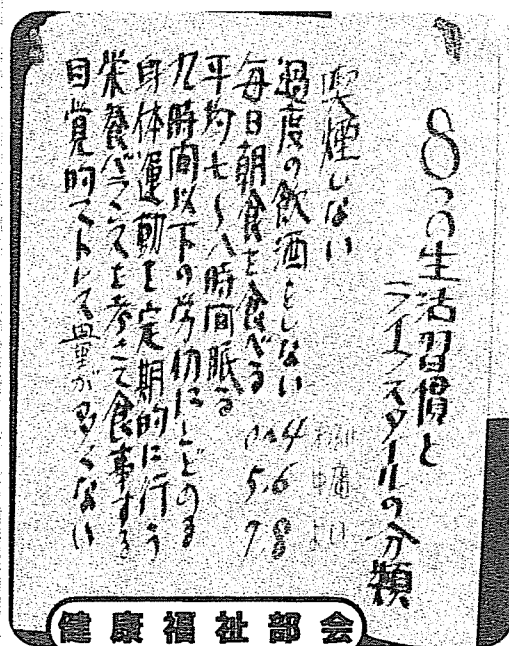 8つの生活習慣と
ライフスタイルの分類
喫煙しない
過度の飲酒をしない
毎日朝食を食べる
平均七〜八時間眠る
九時間以下の労働にとどめる
身体運動を定期的に行う
栄養バランスを考えて食事する
自覚的ストレス量が多くない
0〜4 わるい
5.6 中庸
7.8 よい
健康福祉部会